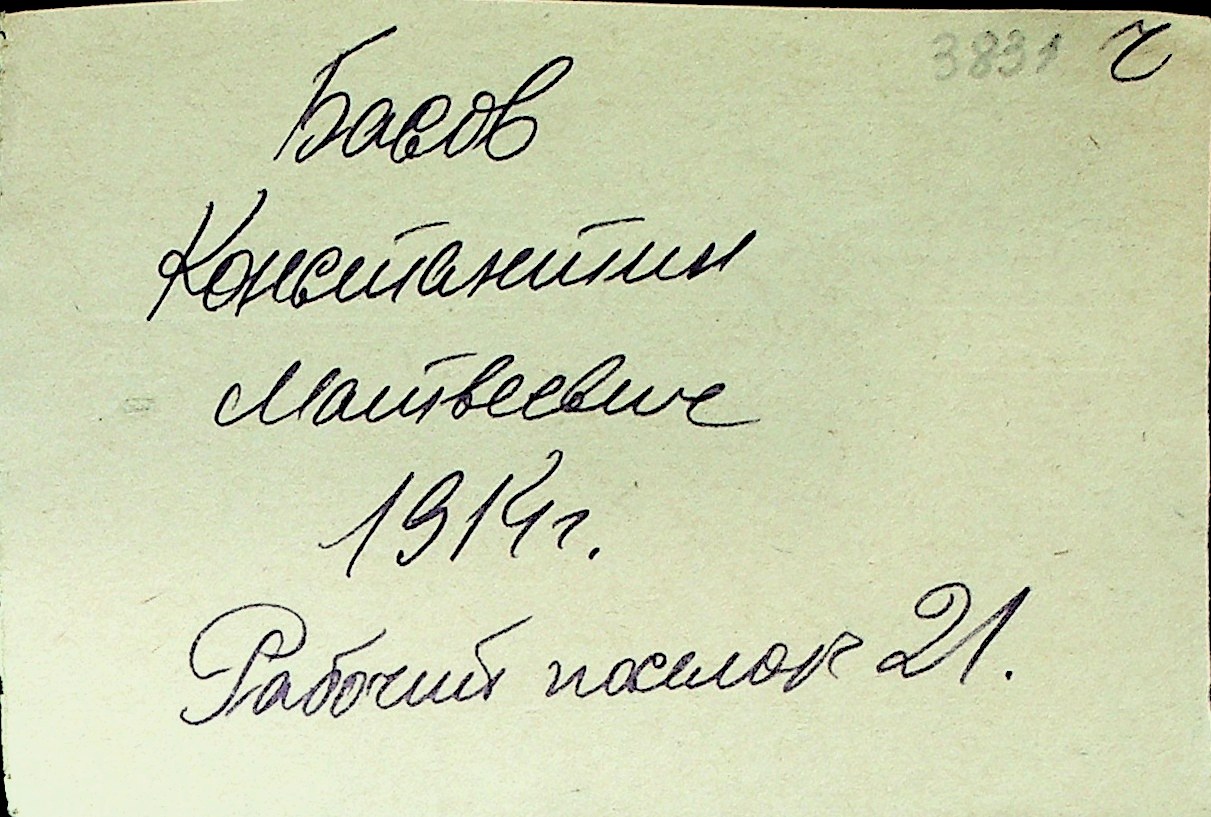 3831 ч
Басов
Константин
Матвеевич
1914г.
Рабочий поселок 21.